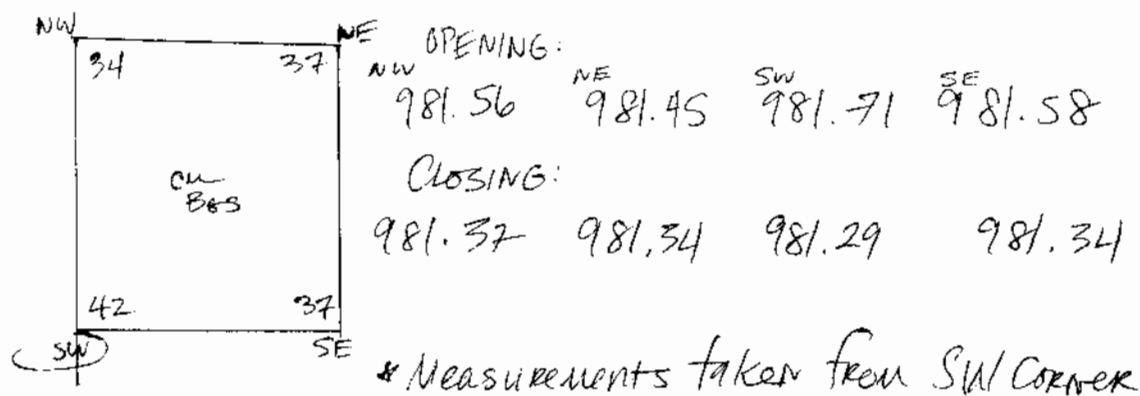 NW NE
34 37
CM
BGS
42 37
SW SE
OPENING:
NW NE SW SE
981.56 981.45 981.71 981.58
CLOSING:
981.37 981.34 981.29 981.34
* Measurements taken from SW Corner